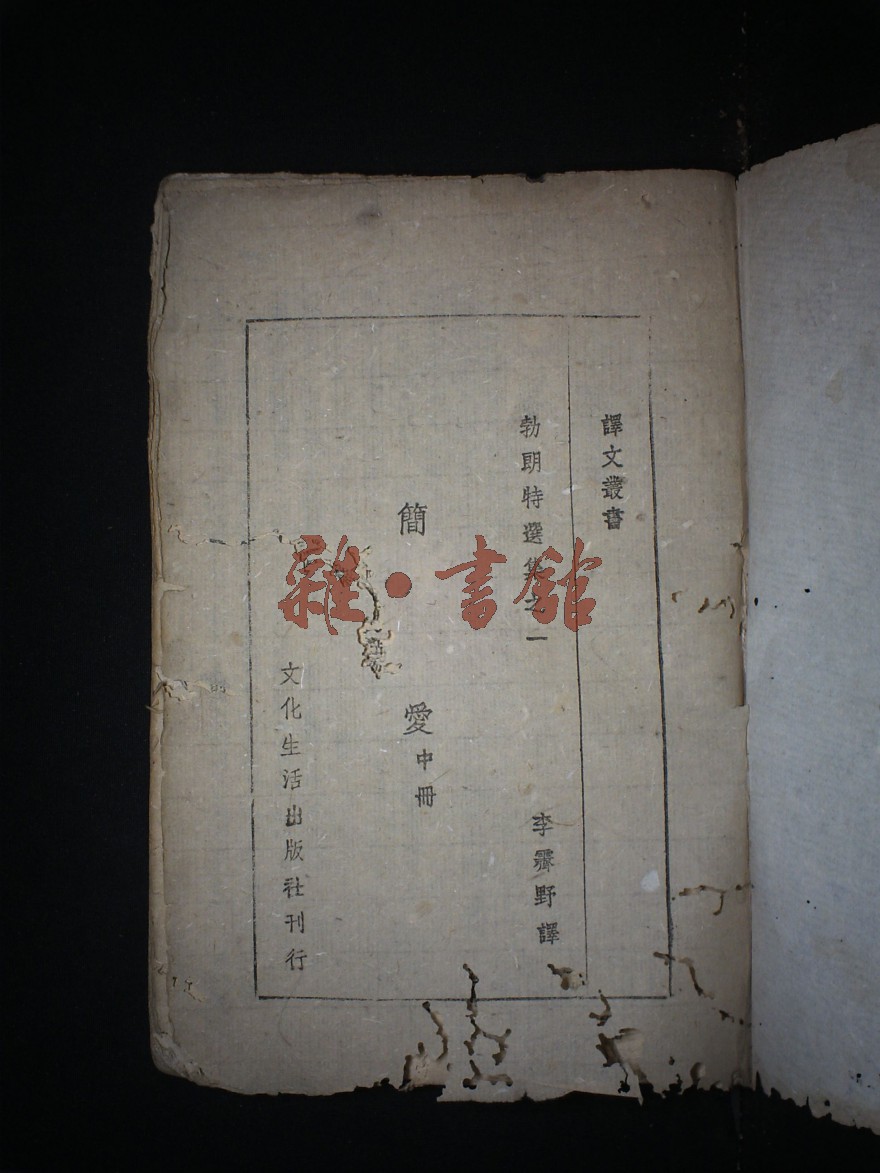 譯文叢書
勃朗特選集之一
李霽野譯
簡愛中冊
文化生活出版社刊行
雜·書館